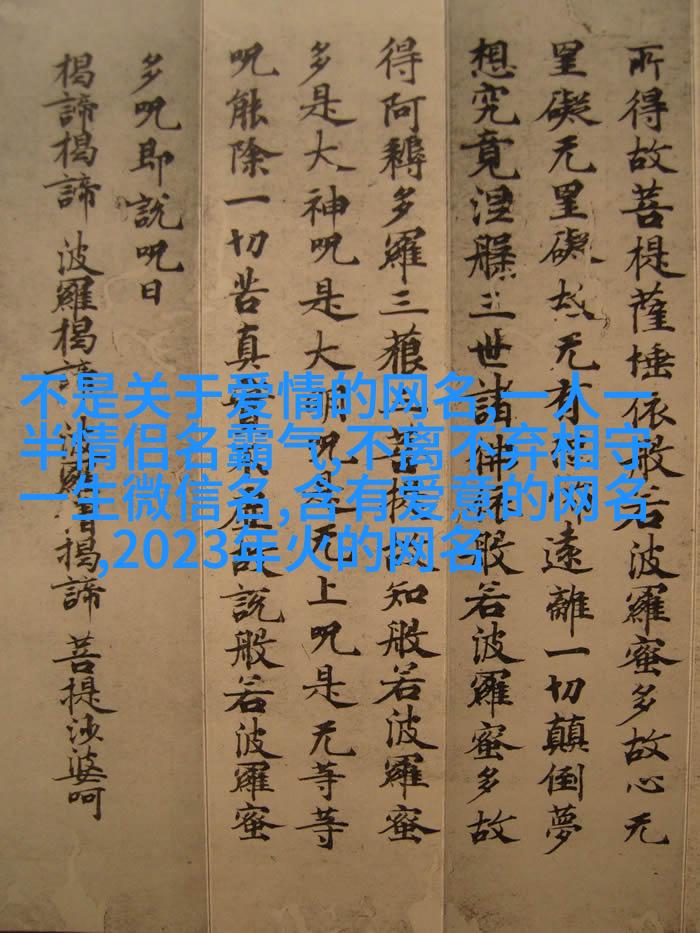 所得故菩提薩埵依般若波羅蜜多故心无
罣礙无罣礙故无有遠離一切顛倒夢
想究竟涅槃三世諸佛依般若波羅蜜多故
得阿耨多羅三藐菩提故知般若波羅蜜
多是大神呪是大明呪是无上呪是无等等
呪能除一切苦真實故說般若波羅蜜
多呪即說呪曰
揭諦揭諦 波羅揭諦 波羅僧揭諦 菩提沙婆呵
不是关于爱情的网名,一人一
半情侣名霸气,不离不弃相守
一生微信名,含有爱意的网名
,2023年火的网名